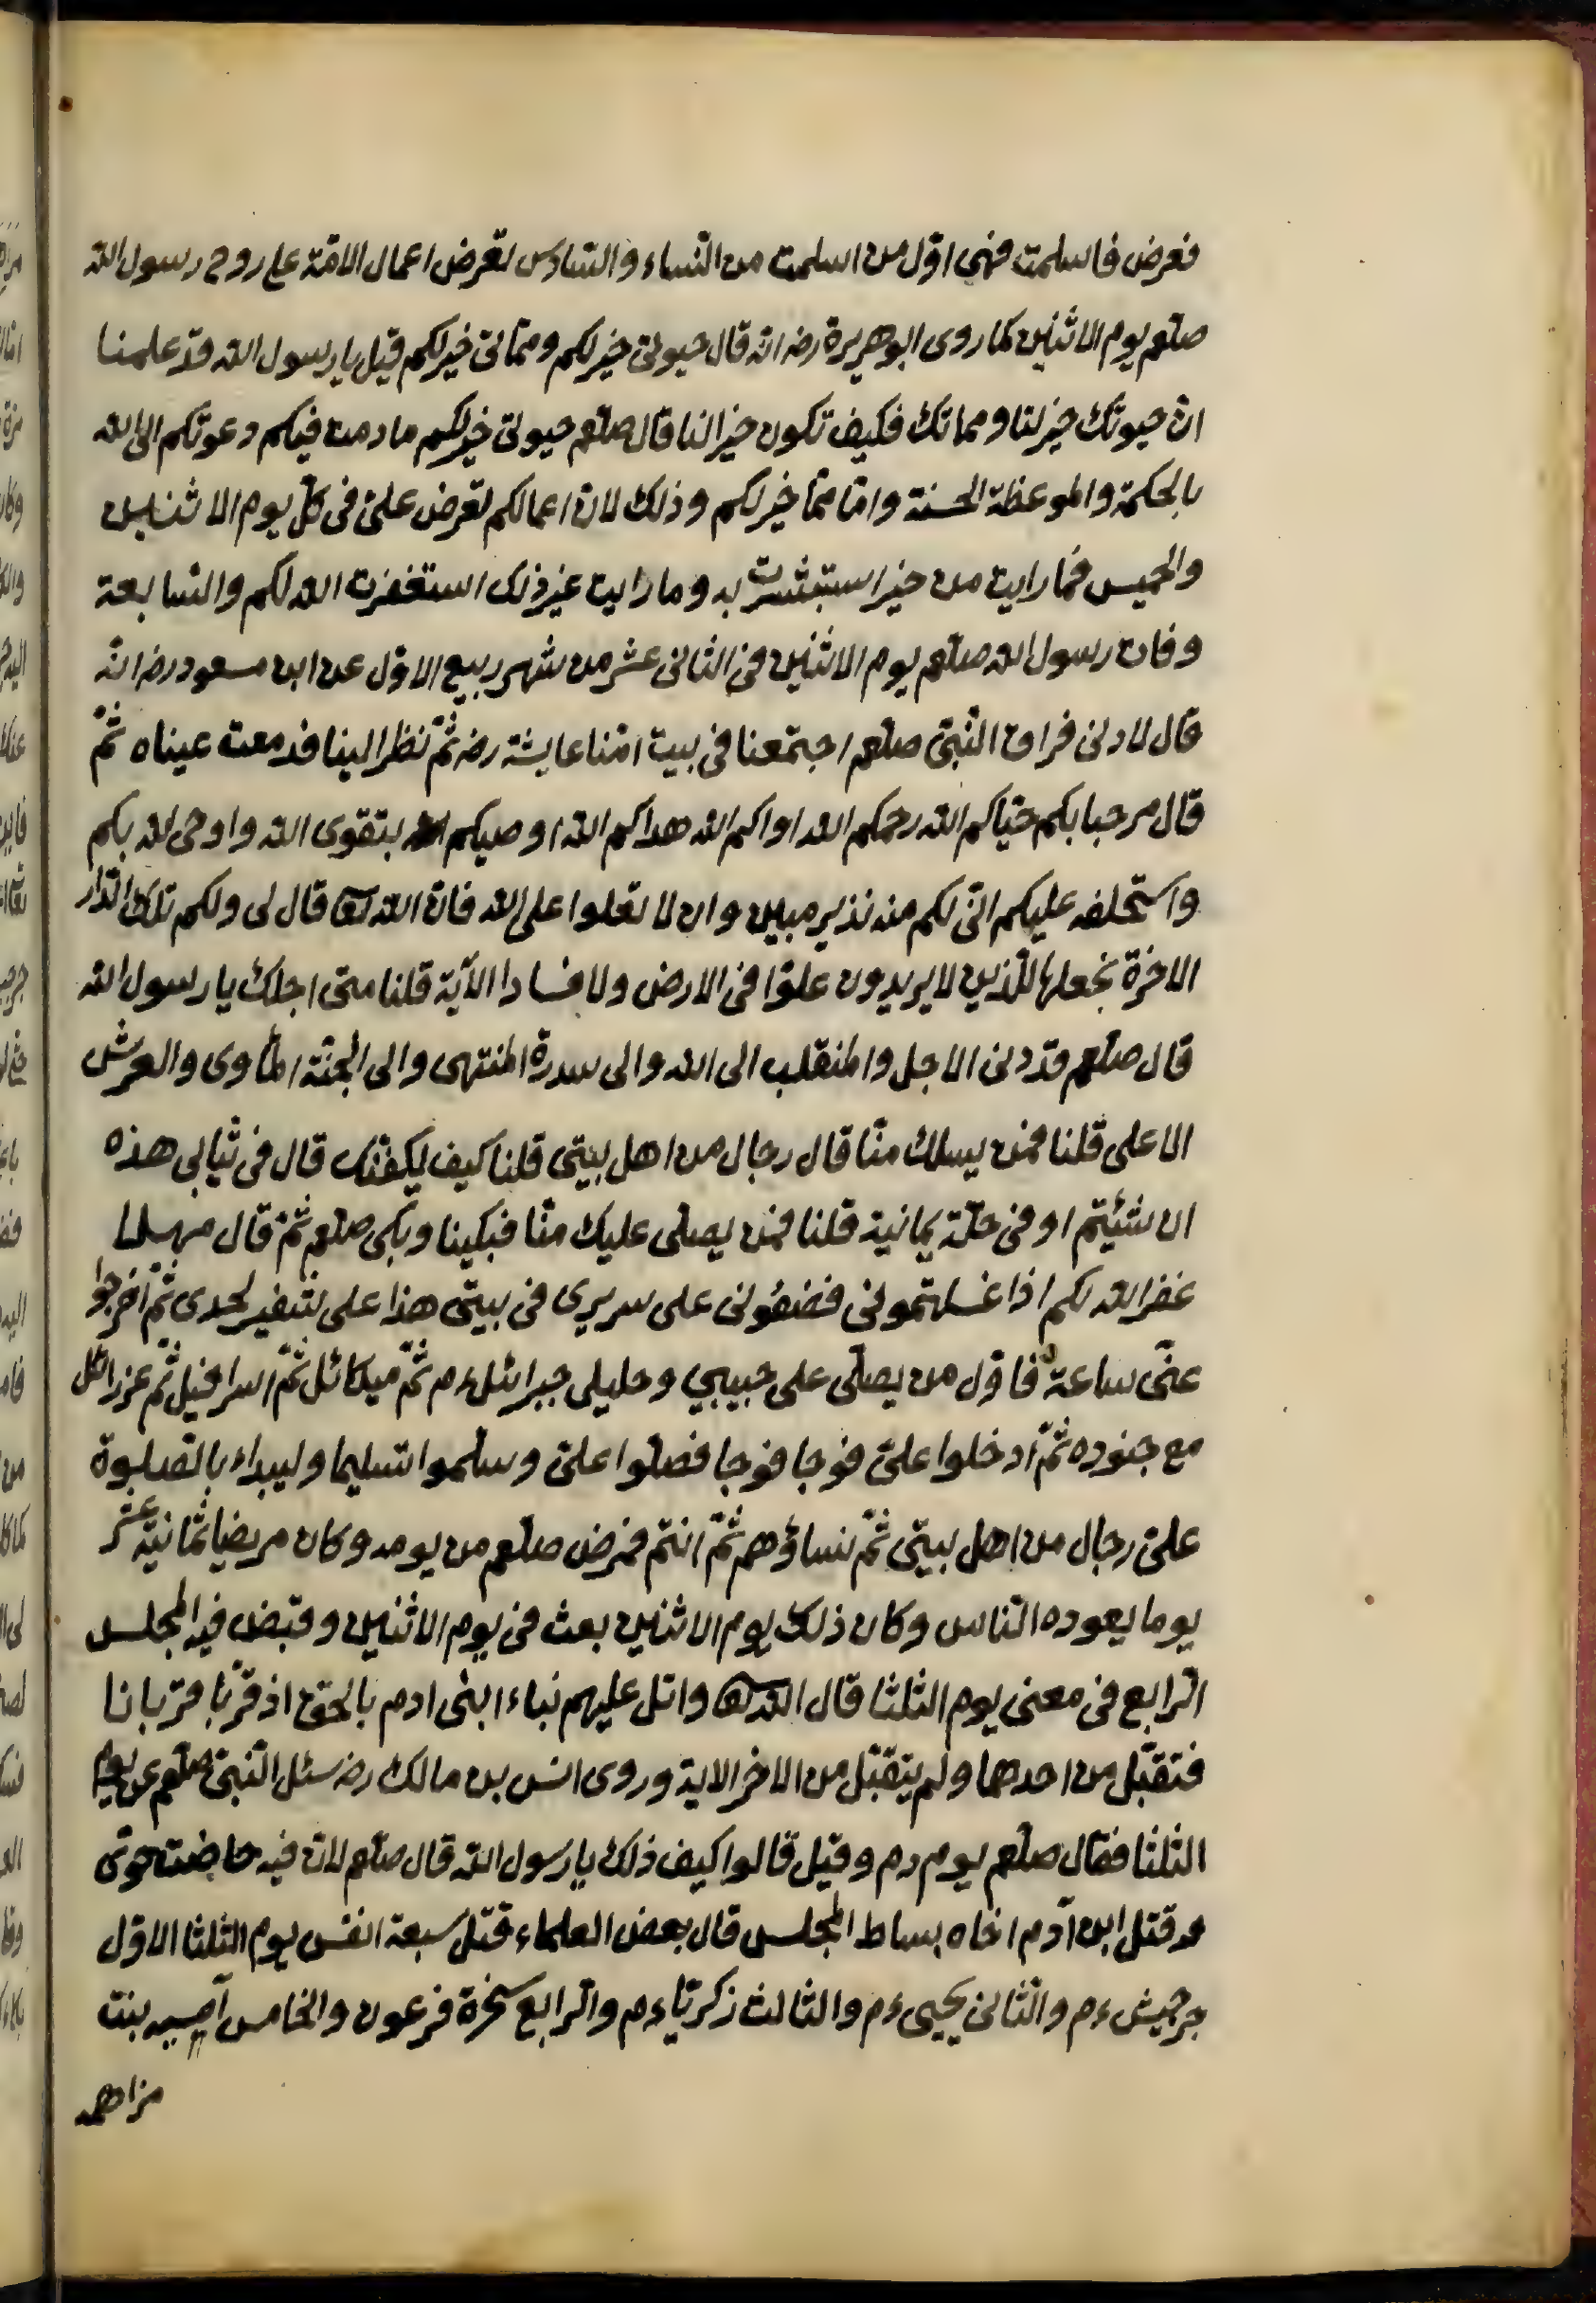 فعرض فاسلمت فهى اوّل من اسلمت من النّساء والسّادس تعرض اعمال الامّة على روح رسول الله
صلعم يوم الاثنين كما روى ابوهريرة رضه انّه قال حيوتى خير لكم ومماتى خير لكم قيل يا رسول الله قد علمنا
انّ حيوتك خير لنا ومماتك فكيف تكون خيرا لنا قال صلعم حيوتى خير لكم ما دمت فيكم دعوتكم الى الله
بالحكمة والموعظة الحسنة وامّا مماتى خير لكم وذلك لانّ اعمالكم تعرض علىّ فى كلّ يوم الاثنين
والخميس فما رايت من خير استبشرت به وما رايت غير ذلك استغفرت الله لكم والسّابعة
وفات رسول الله صلعم يوم الاثنين فى الثانى عشر من شهر ربيع الاوّل عن ابن مسعود رضه انّه
قال لمّا دنى فراق النّبىّ صلعم اجتمعنا فى بيت امّنا عايشة رضه ثمّ نظر الينا فدمعت عيناه ثمّ
قال مرحبا بكم حيّاكم الله رحمكم الله اواكم الله هداكم الله اوصيكم بتقوى الله واوصى الله بكم
واستخلفه عليكم انّى لكم منه نذير مبين وان لا تعلوا على الله فانّ الله تعا قال لى ولكم تلك الدّار
الاخرة نجعلها للّذين لا يريدون علوّا فى الارض ولا فسادا الآية قلنا متى اجلك يا رسول الله
قال صلعم قد دنى الاجل والمنقلب الى الله والى سدرة المنتهى والى الجنّة المأوى والعرش
الاعلى قلنا فمن يسلك منّا قال رجال من اهل بيتى قلنا كيف نكفنك قال فى ثيابى هذه
ان شئتم او فى حلّة يمانية قلنا فمن يصلى عليك منّا فبكينا وبكى صلعم ثمّ قال مهلا
غفر الله لكم اذا غسلتمونى فضعونى على سريرى فى بيتى هذا على شفير لحدى ثمّ اخرجوا
عنّى ساعة فاوّل من يصلّى على حبيبي وخليلى جبرائل ءم ثمّ ميكائل ثمّ اسرافيل ثمّ عزرائل
مع جنوده ثمّ ادخلوا علىّ فوجا فوجا فصلّوا علىّ وسلّموا تسليما وليبداء بالصّلوة
علىّ رجال من اهل بيتى ثمّ نساؤهم ثمّ انتم فمرض صلعم من يومه وكان مريضا ثمانية عشر
يوما يعوده النّاس وكان ذلك يوم الاثنين بعث فى يوم الاثنين وقبض فيه المجلس
الرّابع فى معنى يوم الثلثا قال الله تعا واتل عليهم نباء ابنى ادم بالحقّ اذ قرّبا قربانا
فتقبّل من احدهما ولم يتقبّل من الاخر الاية وروى انس بن مالك رضه سئل النّبىّ صلعم عن يوم
الثلثا فقال صلعم يوم دم وقيل قالوا كيف ذلك يا رسول الله قال صلعم لانّ فيه حاضت حوّى
قتل ابن آدم اخاه بساط المجلس قال بعض العلماء قتل سبعة انفس يوم الثلثا الاوّل
جرجيش ءم والثّانى يحيى ءم والثالث زكريّا ءم والرّابع سخرة فرعون والخامس آسيه بنت
مزاحم